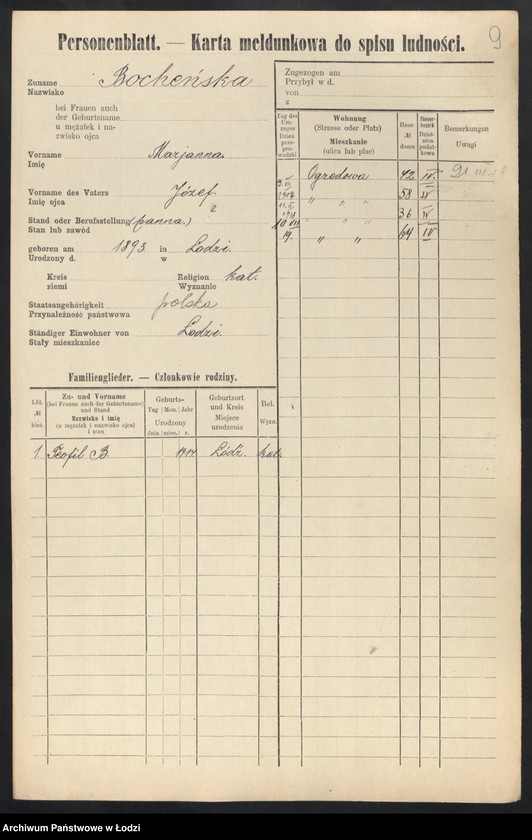 9
Personenblatt. — Karta meldunkowa do spisu ludności.
Zuname Bocheńska
Nazwisko
bei Frauen auch
der Geburtsname
u mężatek i na-
zwisko ojca
Vorname Marjanna
Imię
Vorname des Vaters Józef
Imię ojca
Stand oder Berufsstellung (panna.)
Stan lub zawód
geboren am 1893 in Lodzi.
Urodzony d. w
Kreis Religion kat.
ziemi Wyznanie
Staatsangehörigkeit polska
Przynależność państwowa
Ständiger Einwohner von Lodzi.
Stały mieszkaniec
Zugezogen am
Przybył w d.
von
z
Tag des Um-zuges Dzień prze-prowadzki
Wohnung (Strasse oder Platz) Mieszkanie (ulica lub plac)
Haus- № domu
Steuer-bezirk Dziel-nica podat-kowa
Bemerkungen Uwagi
Ogrodowa 42 IV.
1917 " " " 58 IV
" " 36 IV
19. " " 64 IV
Familienglieder. — Członkowie rodziny.
Lfd. № bież.
Zu- und Vorname (bei Frauen auch der Geburtsname) und Stand Nazwisko i imię (u mężatek i nazwisko ojca) i stan
Geburts- Tag Mon. Jahr Urodzony dnia mies. r.
Geburtsort und Kreis Miejsce urodzenia
Rel. Wyzn.
1. Teofil B. 1914 Łódź. kat.
Archiwum Państwowe w Łodzi